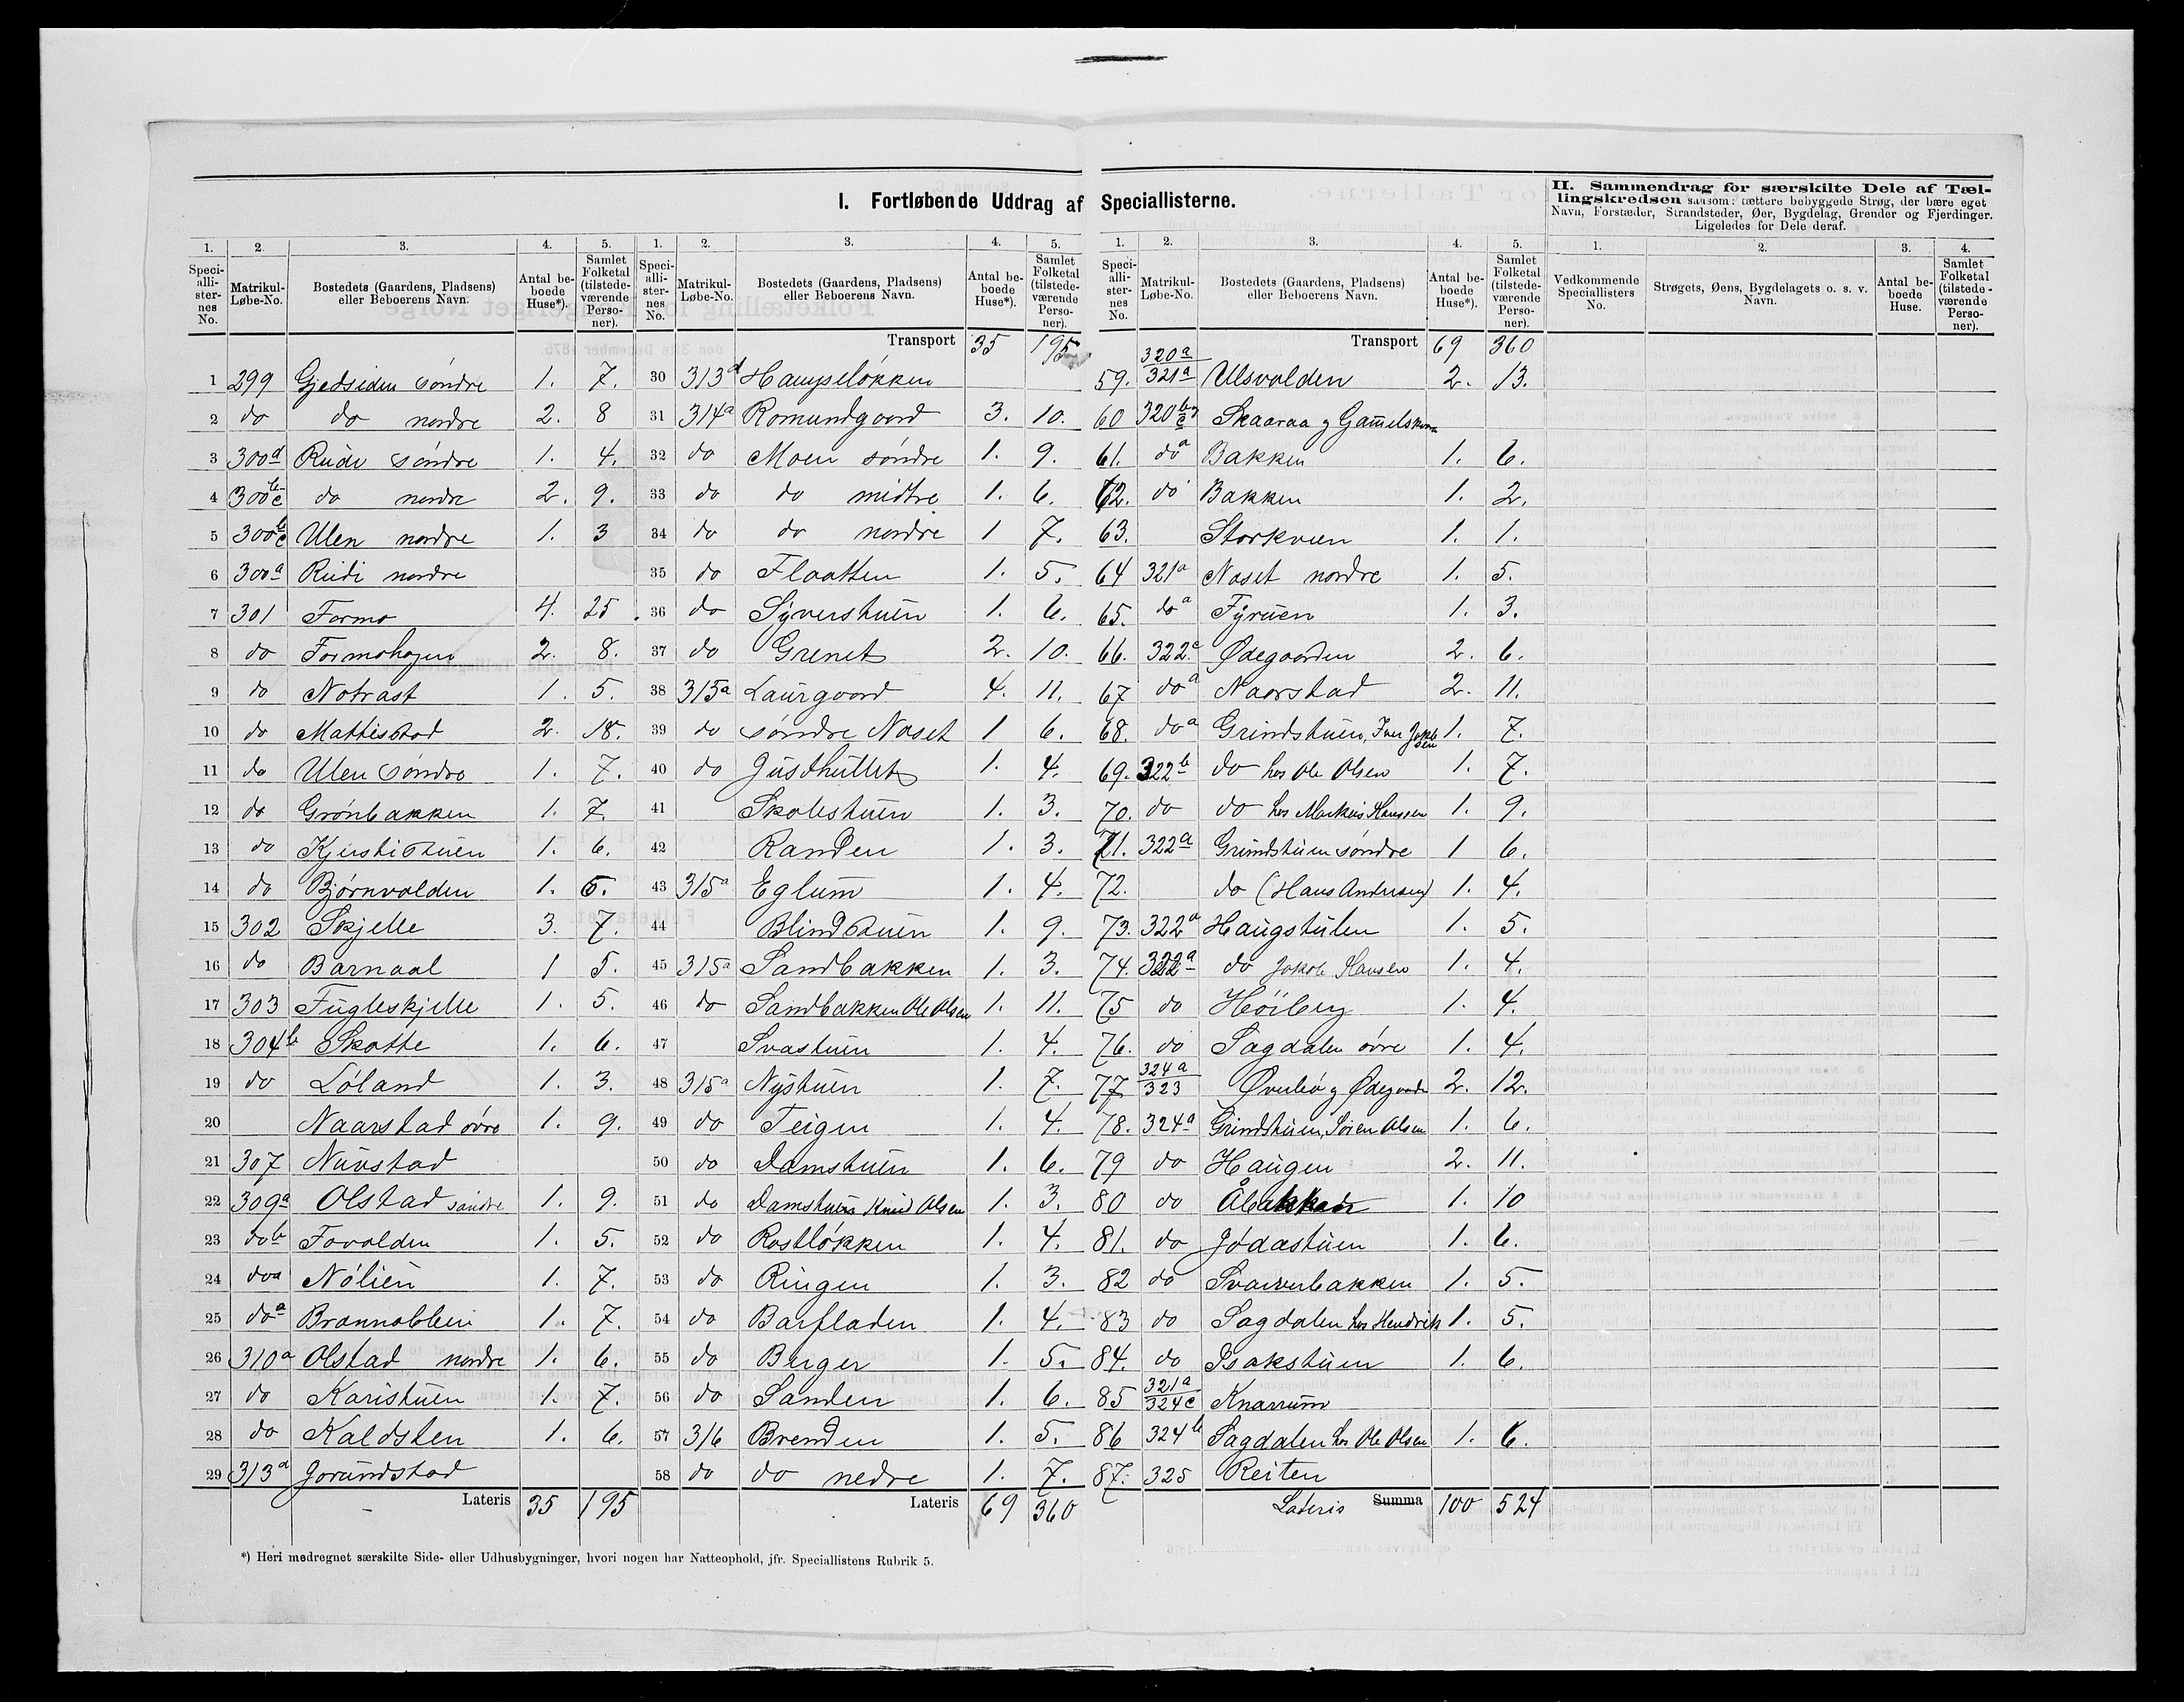 I. Fortløbende Uddrag af Speciallisterne.
II. Sammendrag for særskilte Dele af Tæl-
lingskredsen saasom: tættere bebyggede Strøg, der bære eget
Navn, Forstæder, Strandsteder, Øer, Bygdelag, Grender og Fjerdinger.
Ligeledes for Dele deraf.
1. 2. 3. 4. 5.
Speci-alli-ster-nes No. Matrikul-Løbe-No. Bostedets (Gaardens, Pladsens) eller Beboerens Navn. Antal be-boede Huse*). Samlet Folketal (tilstede-værende Perso-ner).
1 299 Gjedsiden søndre 1. 7.
2 do do nordre 2. 8
3 300d Rudi søndre 1. 4.
4 300b c do nordre 2. 9.
5 300b c Ulen nordre 1. 3
6 300a Rudi nordre
7 301 Formo 4. 25.
8 do Formohagen 2. 8.
9 do Notrast 1. 5.
10 do Mattisstad 2. 18.
11 do Ulen søndre 1. 7.
12 do Grønbakken 1. 7.
13 do Kjerstistuen 1. 6.
14 do Bjørnvolden 1. 6.
15 302 Skjelle 3. 7.
16 do Barnaal 1 5.
17 303 Fugleskjelle 1. 5.
18 304b Skotte 1. 6.
19 do Løland 1. 3.
20 Naarstad øvre 1. 9.
21 307 Nustad
22 309a Olstad søndre 1. 9.
23 dob Fovolden 1. 5.
24 doa Nølien 1. 7.
25 doa 1. 7.
26 310a Olstad nordre 1. 6.
27 do Karistuen 1. 7.
28 do Kaldsten 1. 6.
29 313a Jorundstad
Lateris 35 195
1. 2. 3. 4. 5.
Speci-alli-ster-nes No. Matrikul-Løbe-No. Bostedets (Gaardens, Pladsens) eller Beboerens Navn. Antal be-boede Huse*). Samlet Folketal (tilstede-værende Perso-ner).
Transport 35 195
30 313d Hampeløkken
31 314a Romundgaard 3. 10.
32 do Moen søndre 1. 9.
33 do do midtre 1. 6.
34 do do nordre 1 7.
35 do Flaatten 1. 5.
36 do Syverstuen 1. 6.
37 do Grenet 2. 10.
38 315a Laurgaard 4. 11.
39 do søndre Noset 1 6.
40 do 1. 4.
41 Skolestuen 1. 3.
42 Randen 1. 3.
43 315a Eglum 1. 4.
44 Blindstuen 1. 9.
45 315a Sandbakken 1. 3.
46 do Sandbakken Ole Olsen 1. 11.
47 Svastuen 1. 4.
48 315a Nystuen 1. 7.
49 do Teigen 1. 4.
50 do Damstuen 1. 6.
51 do Damstuen Knud Olsen 1. 3.
52 do Rostløkken 1. 4.
53 do Ringen 1. 3.
54 do Barfladen 1. 4.
55 do Berger 1. 5.
56 do Sanden 1. 6.
57 316 Brenden 1. 5.
58 do do nedre 1. 7.
Lateris 69 360
1. 2. 3. 4. 5.
Speci-alli-ster-nes No. Matrikul-Løbe-No. Bostedets (Gaardens, Pladsens) eller Beboerens Navn. Antal be-boede Huse*). Samlet Folketal (tilstede-værende Perso-ner).
Transport 69 360
59. 320a 321a Ulsvolden 2. 13.
60 320b c Skaaraa
61. doa Bakken 1. 6.
62. do Bakken 1. 2.
63. Storkvien 1. 1.
64 321a Noset nordre 1. 5.
65. doa Fyruen 1. 3.
66. 322c Ødegaarden 2. 6.
67 doa Naarstad 2. 11.
68. doa Grindstuen, Iver Jakobsen 1. 7.
69. 322b do hos Ole Olsen 1. 7.
70. do do hos Markus Hansen 1. 9.
71. 322a Grindstuen søndre 1 6.
72. do (Hans Andersen) 1. 4.
73. 322a Haugstulen 1. 5.
74. 322a do Jakob Hansen 1. 4.
75 do Høiberg 1. 4.
76. do Sagdalen øvre 1. 4.
77 324a 323 Øverbø g Ødegaarden 2. 12.
78. 324a Grindstuen, Søren Olsen 1. 6.
79 do Haugen 2. 11.
80 do Åbakken 1. 10
81. do Jødastuen 1. 6.
82 do Svarverbakken 1. 5.
83 do Sagdalen hos Hendrik 1. 5.
84. do Isakstuen 1. 6.
85 321a 324c Knarrum
86 324b Sagdalen hos Ole Olsen 1. 6.
87. 325 Reiten
Lateris Summa 100 524
1. 2. 3. 4.
Vedkommende Speciallisters No. Strøgets, Øens, Bygdelagets o. s. v. Navn. Antal be-boede Huse. Samlet Folketal (tilstede-værende Perso-ner).
*) Heri medregnet særskilte Side- eller Udhusbygninger, hvori nogen har Natteophold, jfr. Speciallistens Rubrik 5.